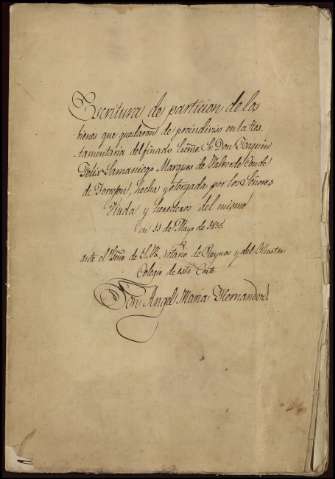 Escritura de particion de los
bienes que quedaron de proindiviso en la tes
tamentaria del finado Excmo S. Don Joaquin
Felix Samaniego Marques de Valverde Conde
de Torrejon, hecha y otorgada por los Señores
Viuda y herederos del mismo
en 11 de Mayo de
ante el Esno de S. M. notario de Reynos y del Ilustre
Colegio de esta Corte
Don Angel Maria Hernandez